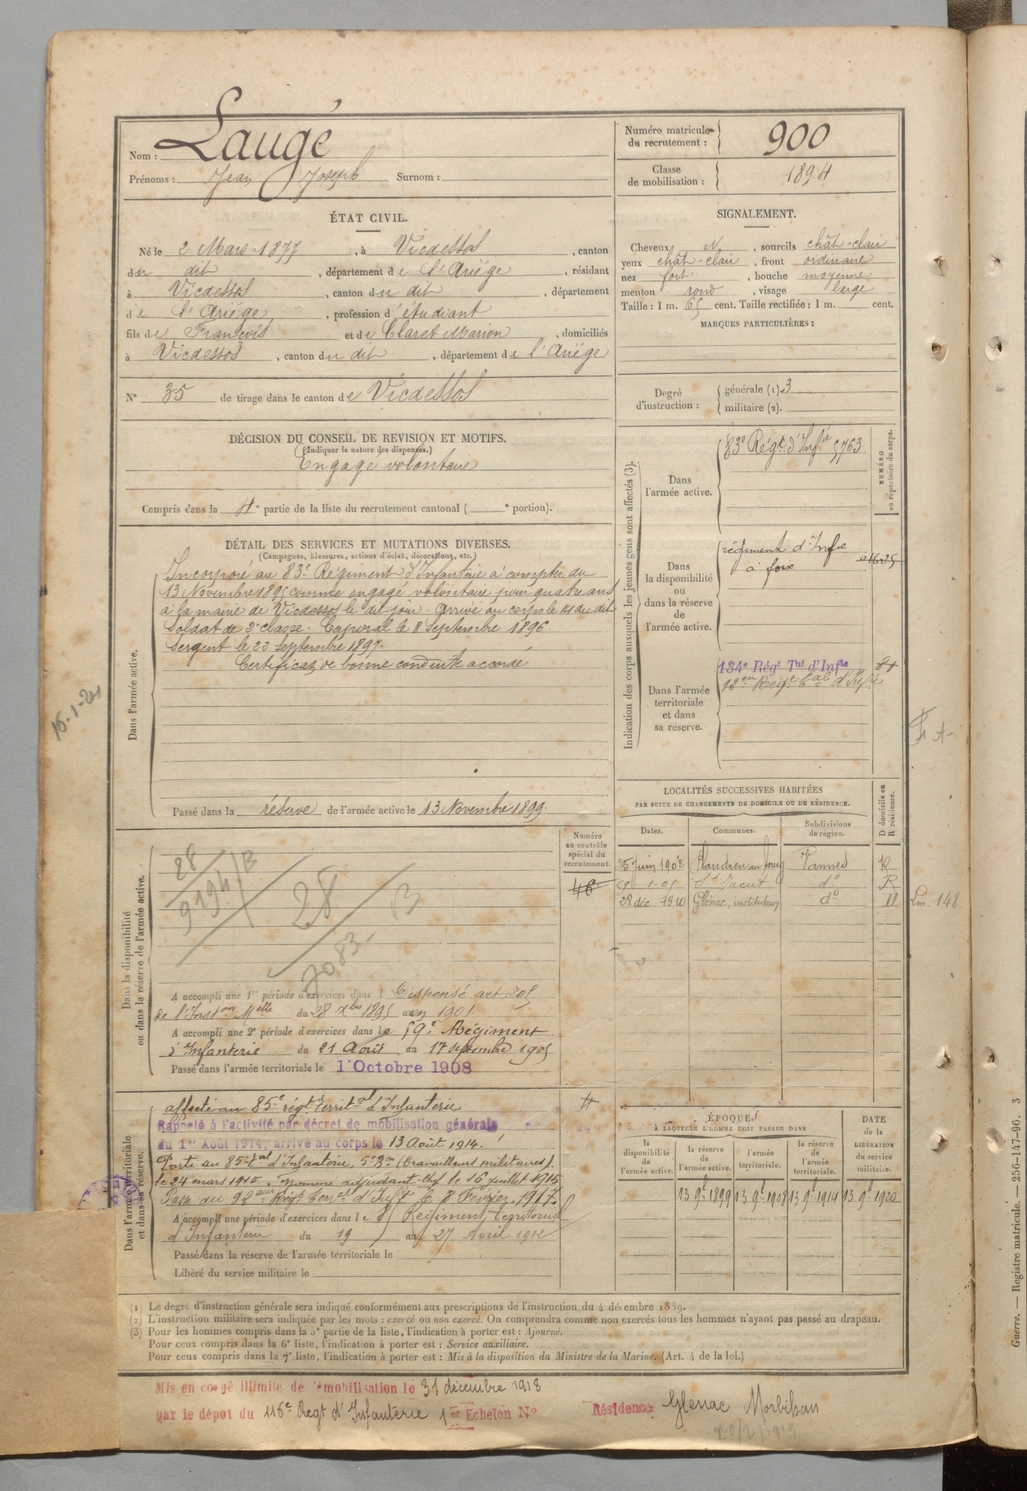 Nom : Laugé
Prénoms : Jean Joseph Surnom :
Numéro matricule du recrutement : 900
Classe de mobilisation : 1894
ÉTAT CIVIL.
Né le 2 Mars 1877, à Vicdessos, canton
du dit, département de l'Ariége, résidant
à Vicdessos, canton du dit, département
de l'Ariége, profession d'étudiant
fils de François et de Claret Marion, domiciliés
à Vicdessos, canton du dit, département de l'Ariége
N° 35 de tirage dans le canton de Vicdessos
SIGNALEMENT.
Cheveux N, sourcils chât-clair
yeux chât-clair, front ordinaire
nez fort, bouche moyenne
menton rond, visage large
Taille : 1 m. 65 cent. Taille rectifiée : 1 m. cent.
MARQUES PARTICULIÈRES :
Degré d'instruction : générale (1). 3
militaire (2).
DÉCISION DU CONSEIL DE REVISION ET MOTIFS.
(Indiquer la nature des dispenses.)
Engagé volontaire
Compris dans la 4e partie de la liste du recrutement cantonal ( e portion).
DÉTAIL DES SERVICES ET MUTATIONS DIVERSES.
(Campagnes, blessures, actions d'éclat, décorations, etc.)
Dans l'armée active.
Incorporé au 83e Régiment d'Infanterie à compter du
13 Novembre 1895 comme engagé volontaire pour quatre ans
à la mairie de Vicdessos le dit jour. Arrivé au corps le 14 du dit
Soldat de 2e classe. Caporal le 8 Septembre 1896
Sergent le 23 Septembre 1897
Certificat de bonne conduite accordé
Passé dans la réserve de l'armée active le 13 Novembre 1899
15-1-21
Indication des corps auxquels les jeunes gens sont affectés (3).
NUMÉRO au répertoire du corps.
Dans l'armée active.
83e Régt d'Infie 5763
Dans la disponibilité ou dans la réserve de l'armée active.
régiment d'Infie
à foix
Dans l'armée territoriale et dans sa réserve.
134e Régt Tal d'Infie
92eme Régt Tal d'Infie
LOCALITÉS SUCCESSIVES HABITÉES
PAR SUITE DE CHANGEMENTS DE DOMICILE OU DE RÉSIDENCE.
Dates. Communes. Subdivisions de région. D domicile ou R résidence.
25 juin 1902 Vannes R
St Jacut do R
28 déc. 1910 Glénac, instituteur do D
148
Numéro au contrôle spécial du recrutement.
46
Dans la disponibilité ou dans la réserve de l'armée active.
28
9194/B
28
B
7083
A accompli une 1re période d'exercices dans l Dispensé art 205
de l'Inston Melle du 28 Xbre 1895 en 1901
A accompli une 2e période d'exercices dans le 59e Régiment
d'Infanterie du 21 Août au 17 septembre 1905
Passé dans l'armée territoriale le 1er Octobre 1908
Dans l'armée territoriale et dans sa réserve.
affecté au 85e régt territal d'Infanterie
Rappelé à l'activité par décret de mobilisation générale
du 1er Août 1914, arrivé au corps le 13 Août 1914.
Passé au 85e Tal d'Infanterie, 5e Bon (travailleurs militaires).
le 24 mars 1915. Nommé adjudant Chef le 16 juillet 1915
Passé au 92eme Régt Terral d'Inft le 8 Février 1917
A accompli une période d'exercices dans l e 85 Régiment Territorial
d'Infanterie du 19 au 27 Avril 1912
Passé dans la réserve de l'armée territoriale le
Libéré du service militaire le
ÉPOQUES
À LAQUELLE L'HOMME DOIT PASSER DANS
la disponibilité de l'armée active.
la réserve de l'armée active.
l'armée territoriale.
la réserve de l'armée territoriale.
DATE de la LIBÉRATION du service militaire.
13 9bre 1899 13 9bre 1908 13 9bre 1914 13 9bre 1920
(1) Le degré d'instruction générale sera indiqué conformément aux prescriptions de l'instruction du 4 décembre 1889.
(2) L'instruction militaire sera indiquée par les mots : exercé ou non exercé. On comprendra comme non exercés tous les hommes n'ayant pas passé au drapeau.
(3) Pour les hommes compris dans la 5e partie de la liste, l'indication à porter est : Ajourné.
Pour ceux compris dans la 6e liste, l'indication à porter est : Service auxiliaire.
Pour ceux compris dans la 7e liste, l'indication à porter est : Mis à la disposition du Ministre de la Marine. (Art. 4 de la loi.)
Mis en congé illimité de démobilisation le 31 décembre 1918
par le dépot du 116e Regt d'Infanterie 1er Echelon N°
Résidence Glénac Morbihan
Guerre. — Registre matricule. — 256-147-96. 3